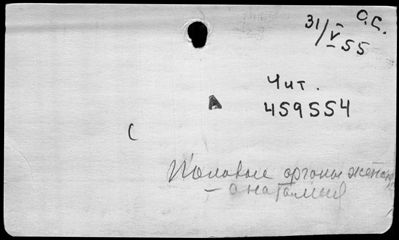 О.С.
31/V 55
Чит.
459554
А
С
Половые органы женск
– анатомия